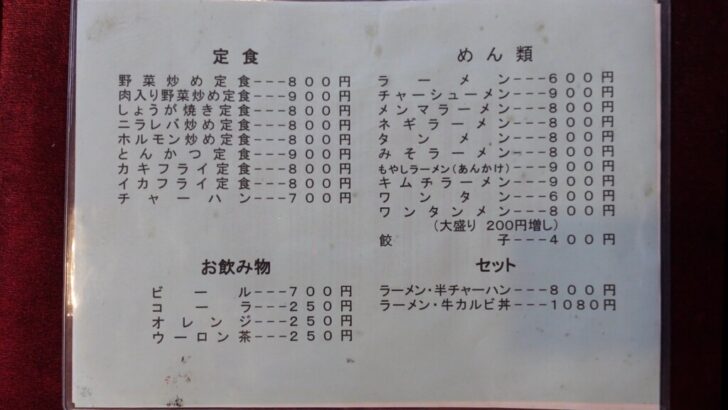 定食
野菜炒め定食---８００円
肉入り野菜炒め定食---９００円
しょうが焼き定食---８００円
ニラレバ炒め定食---８００円
ホルモン炒め定食---８００円
とんかつ定食---９００円
カキフライ定食---８００円
イカフライ定食---８００円
チャーハン---７００円
お飲み物
ビール---７００円
コーラ---２５０円
オレンジ---２５０円
ウーロン茶---２５０円
めん類
ラーメン---６００円
チャーシューメン---９００円
メンマラーメン---８００円
ネギラーメン---８００円
タンメン---８００円
みそラーメン---８００円
もやしラーメン(あんかけ)---９００円
キムチラーメン---９００円
ワンタン---６００円
ワンタンメン---８００円
(大盛り 200円増し)
餃子---４００円
セット
ラーメン・半チャーハン---８００円
ラーメン・牛カルビ丼---１０８０円